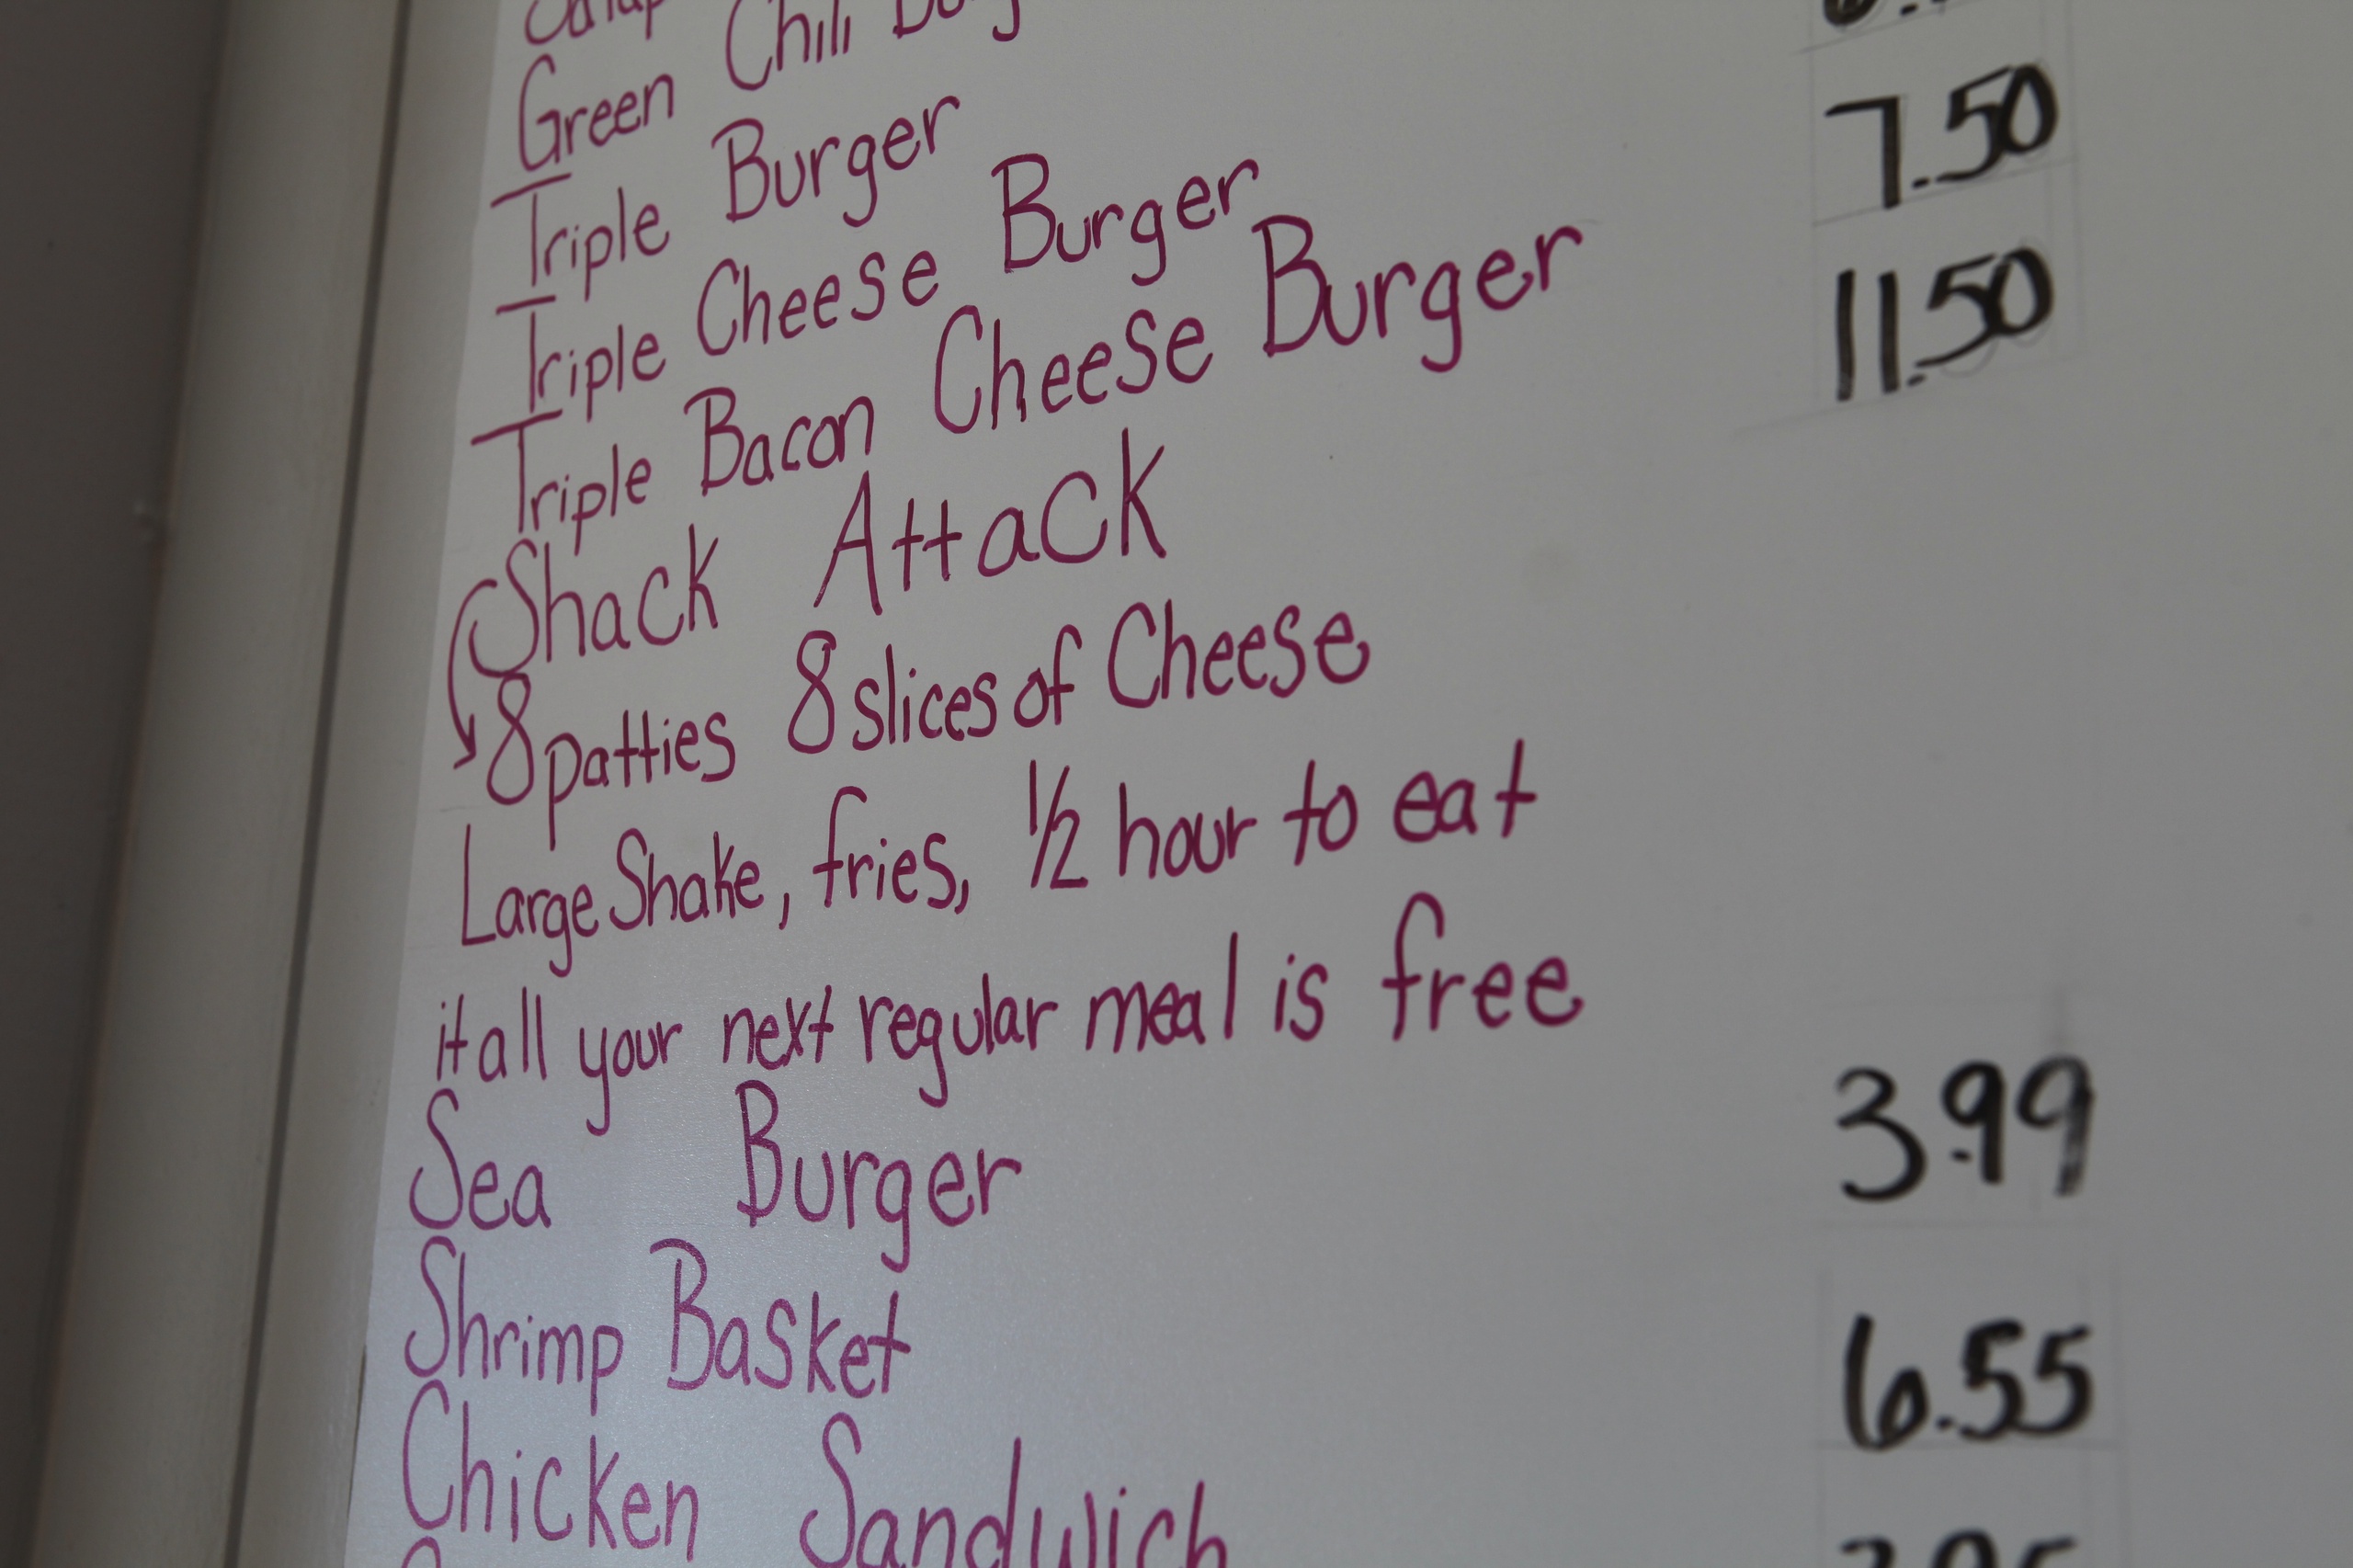 Green Chili
Triple Burger
Triple Cheese Burger
Triple Bacon Cheese Burger 7.50
Shack Attack 11.50
8 patties 8 slices of Cheese
Large Shake, fries, 1/2 hour to eat
it all your next regular meal is free
Sea Burger 3.99
Shrimp Basket 6.55
Chicken Sandwich